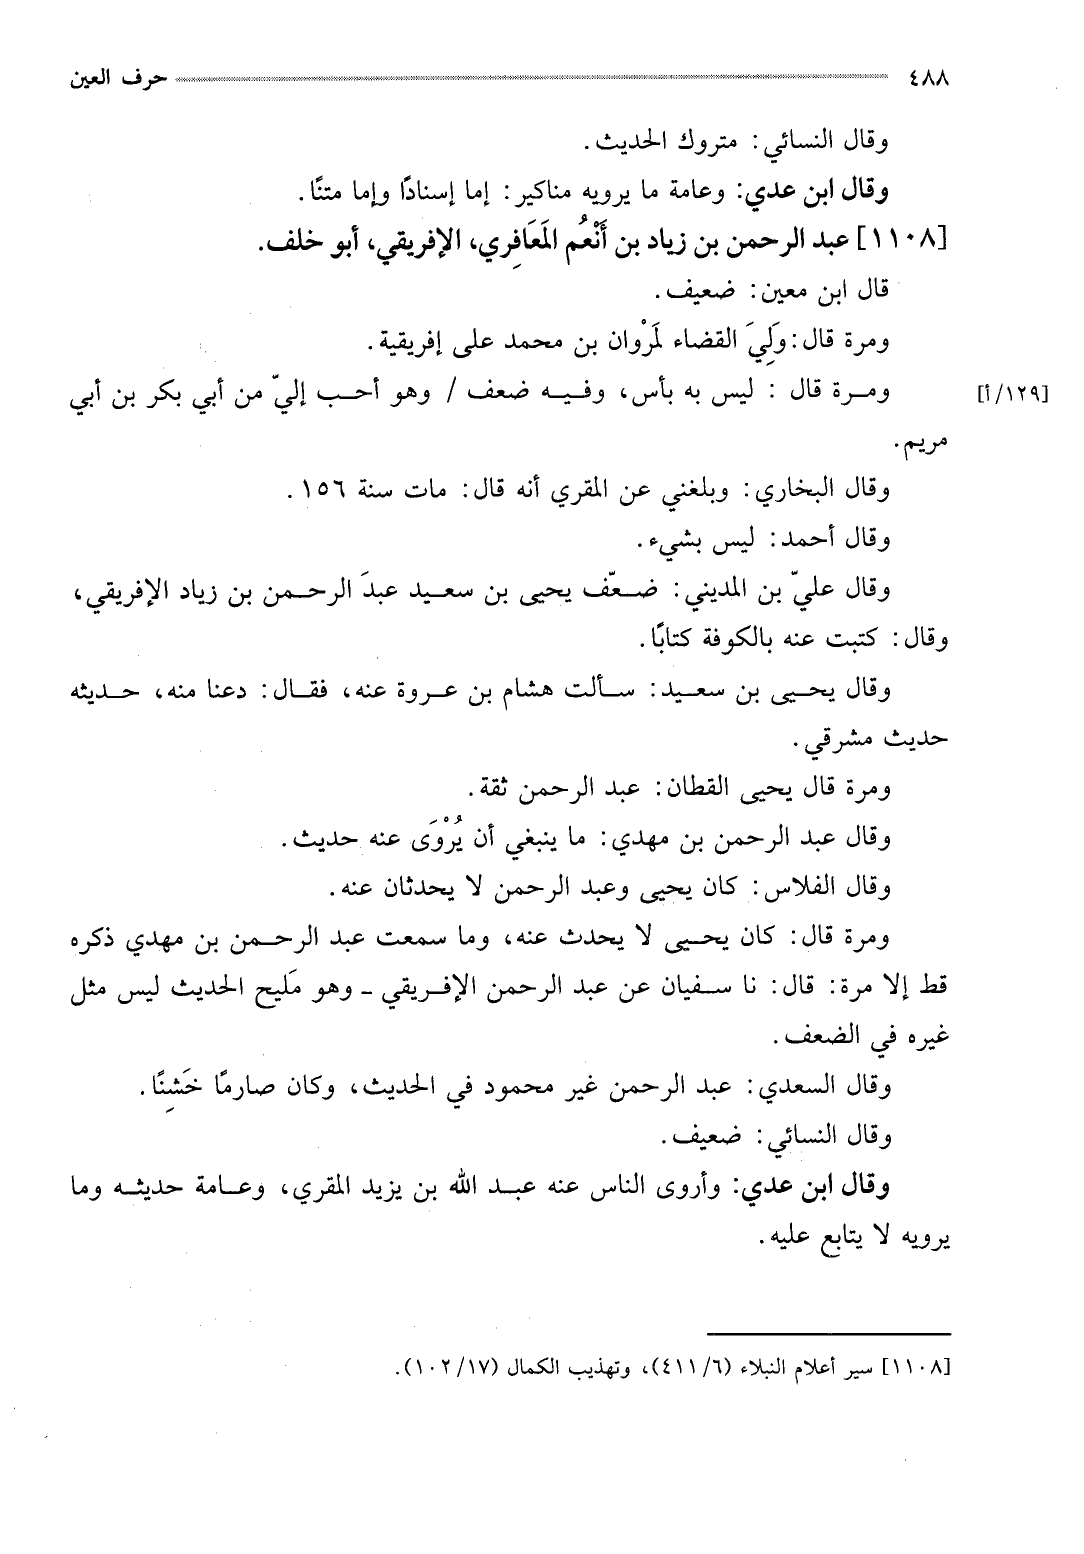 ٤٨٨ حرف العين
وقال النسائي: متروك الحديث.
وقال ابن عدي: وعامة ما يرويه مناكير: إما إسنادًا وإما متنًا.
[١١٠٨] عبد الرحمن بن زياد بن أَنْعُم المَعَافِري، الإفريقي، أبو خلف.
قال ابن معين: ضعيف.
ومرة قال: وَلِيَ القضاء لمَرْوان بن محمد على إفريقية.
[١٢٩/أ] ومرة قال: ليس به بأس، وفيه ضعف / وهو أحب إليّ من أبي بكر بن أبي
مريم.
وقال البخاري: وبلغني عن المقري أنه قال: مات سنة ١٥٦.
وقال أحمد: ليس بشيء.
وقال عليّ بن المديني: ضعّف يحيى بن سعيد عبدَ الرحمن بن زياد الإفريقي،
وقال: كتبت عنه بالكوفة كتابًا.
وقال يحيى بن سعيد: سألت هشام بن عروة عنه، فقال: دعنا منه، حديثه
حديث مشرقي.
ومرة قال يحيى القطان: عبد الرحمن ثقة.
وقال عبد الرحمن بن مهدي: ما ينبغي أن يُرْوَى عنه حديث.
وقال الفلاس: كان يحيى وعبد الرحمن لا يحدثان عنه.
ومرة قال: كان يحيى لا يحدث عنه، وما سمعت عبد الرحمن بن مهدي ذكره
قط إلا مرة: قال: نا سفيان عن عبد الرحمن الإفريقي ـ وهو مَليح الحديث ليس مثل
غيره في الضعف.
وقال السعدي: عبد الرحمن غير محمود في الحديث، وكان صارمًا خَشِنًا.
وقال النسائي: ضعيف.
وقال ابن عدي: وأروى الناس عنه عبد الله بن يزيد المقري، وعامة حديثه وما
يرويه لا يتابع عليه.
[١١٠٨] سير أعلام النبلاء (٤١١/٦)، وتهذيب الكمال (١٠٢/١٧).